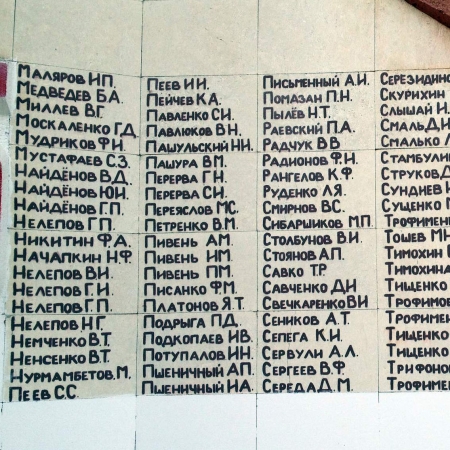 Маляров И.П.
Медведев Б.А.
Миллев В.Г.
Москаленко Г.Д.
Мудриков Ф.И.
Мустафаев С.З.
Найдёнов В.Д.
Найдёнов Ю.И.
Найдёнов Г.П.
Нелепов Г.П.
Никитин Ф.А.
Начапкин Н.Ф.
Нелепов В.И.
Нелепов Г.И.
Нелепов Г.П.
Нелепов Н.Г.
Немченко В.Т.
Ненсенко В.Т.
Нурмамбетов.М.
Пеев С.С.
Пеев И.И.
Пейчев К.А.
Павленко С.И.
Павлюков В.Н.
Пашульский Н.Н.
Пашура В.М.
Перерва Г.Н.
Перерва С.И.
Переяслов М.С.
Петренко В.М.
Пивень А.М.
Пивень И.М.
Пивень П.М.
Писанко Ф.М.
Платонов Я.Т.
Подрыга П.Д.
Подкопаев И.В.
Потупалов И.Н.
Пшеничный А.П.
Пшеничный И.А.
Письменный А.И.
Помазан П.Н.
Пылёв Н.Т.
Раевский П.А.
Радчук В.В
Радионов Ф.И.
Рангелов К.Ф.
Руденко Л.Я.
Смирнов В.С.
Сибаршиков М.П.
Столбунов В.И.
Стоянов А.П.
Савко Т.Р.
Савченко Д.И
Свечкаренко В.И
Сеников А.Т.
Сепега К.И.
Сервули А.Л.
Сергеев В.Ф.
Середа Д.М.
Скурихин
Слышай И
Смаль Д.И
Смалько
Струков Д
Сундиев И
Сущенко
Тошев М
Тимохин
Тимохина
Тищенко
Тищенко
Тищенко